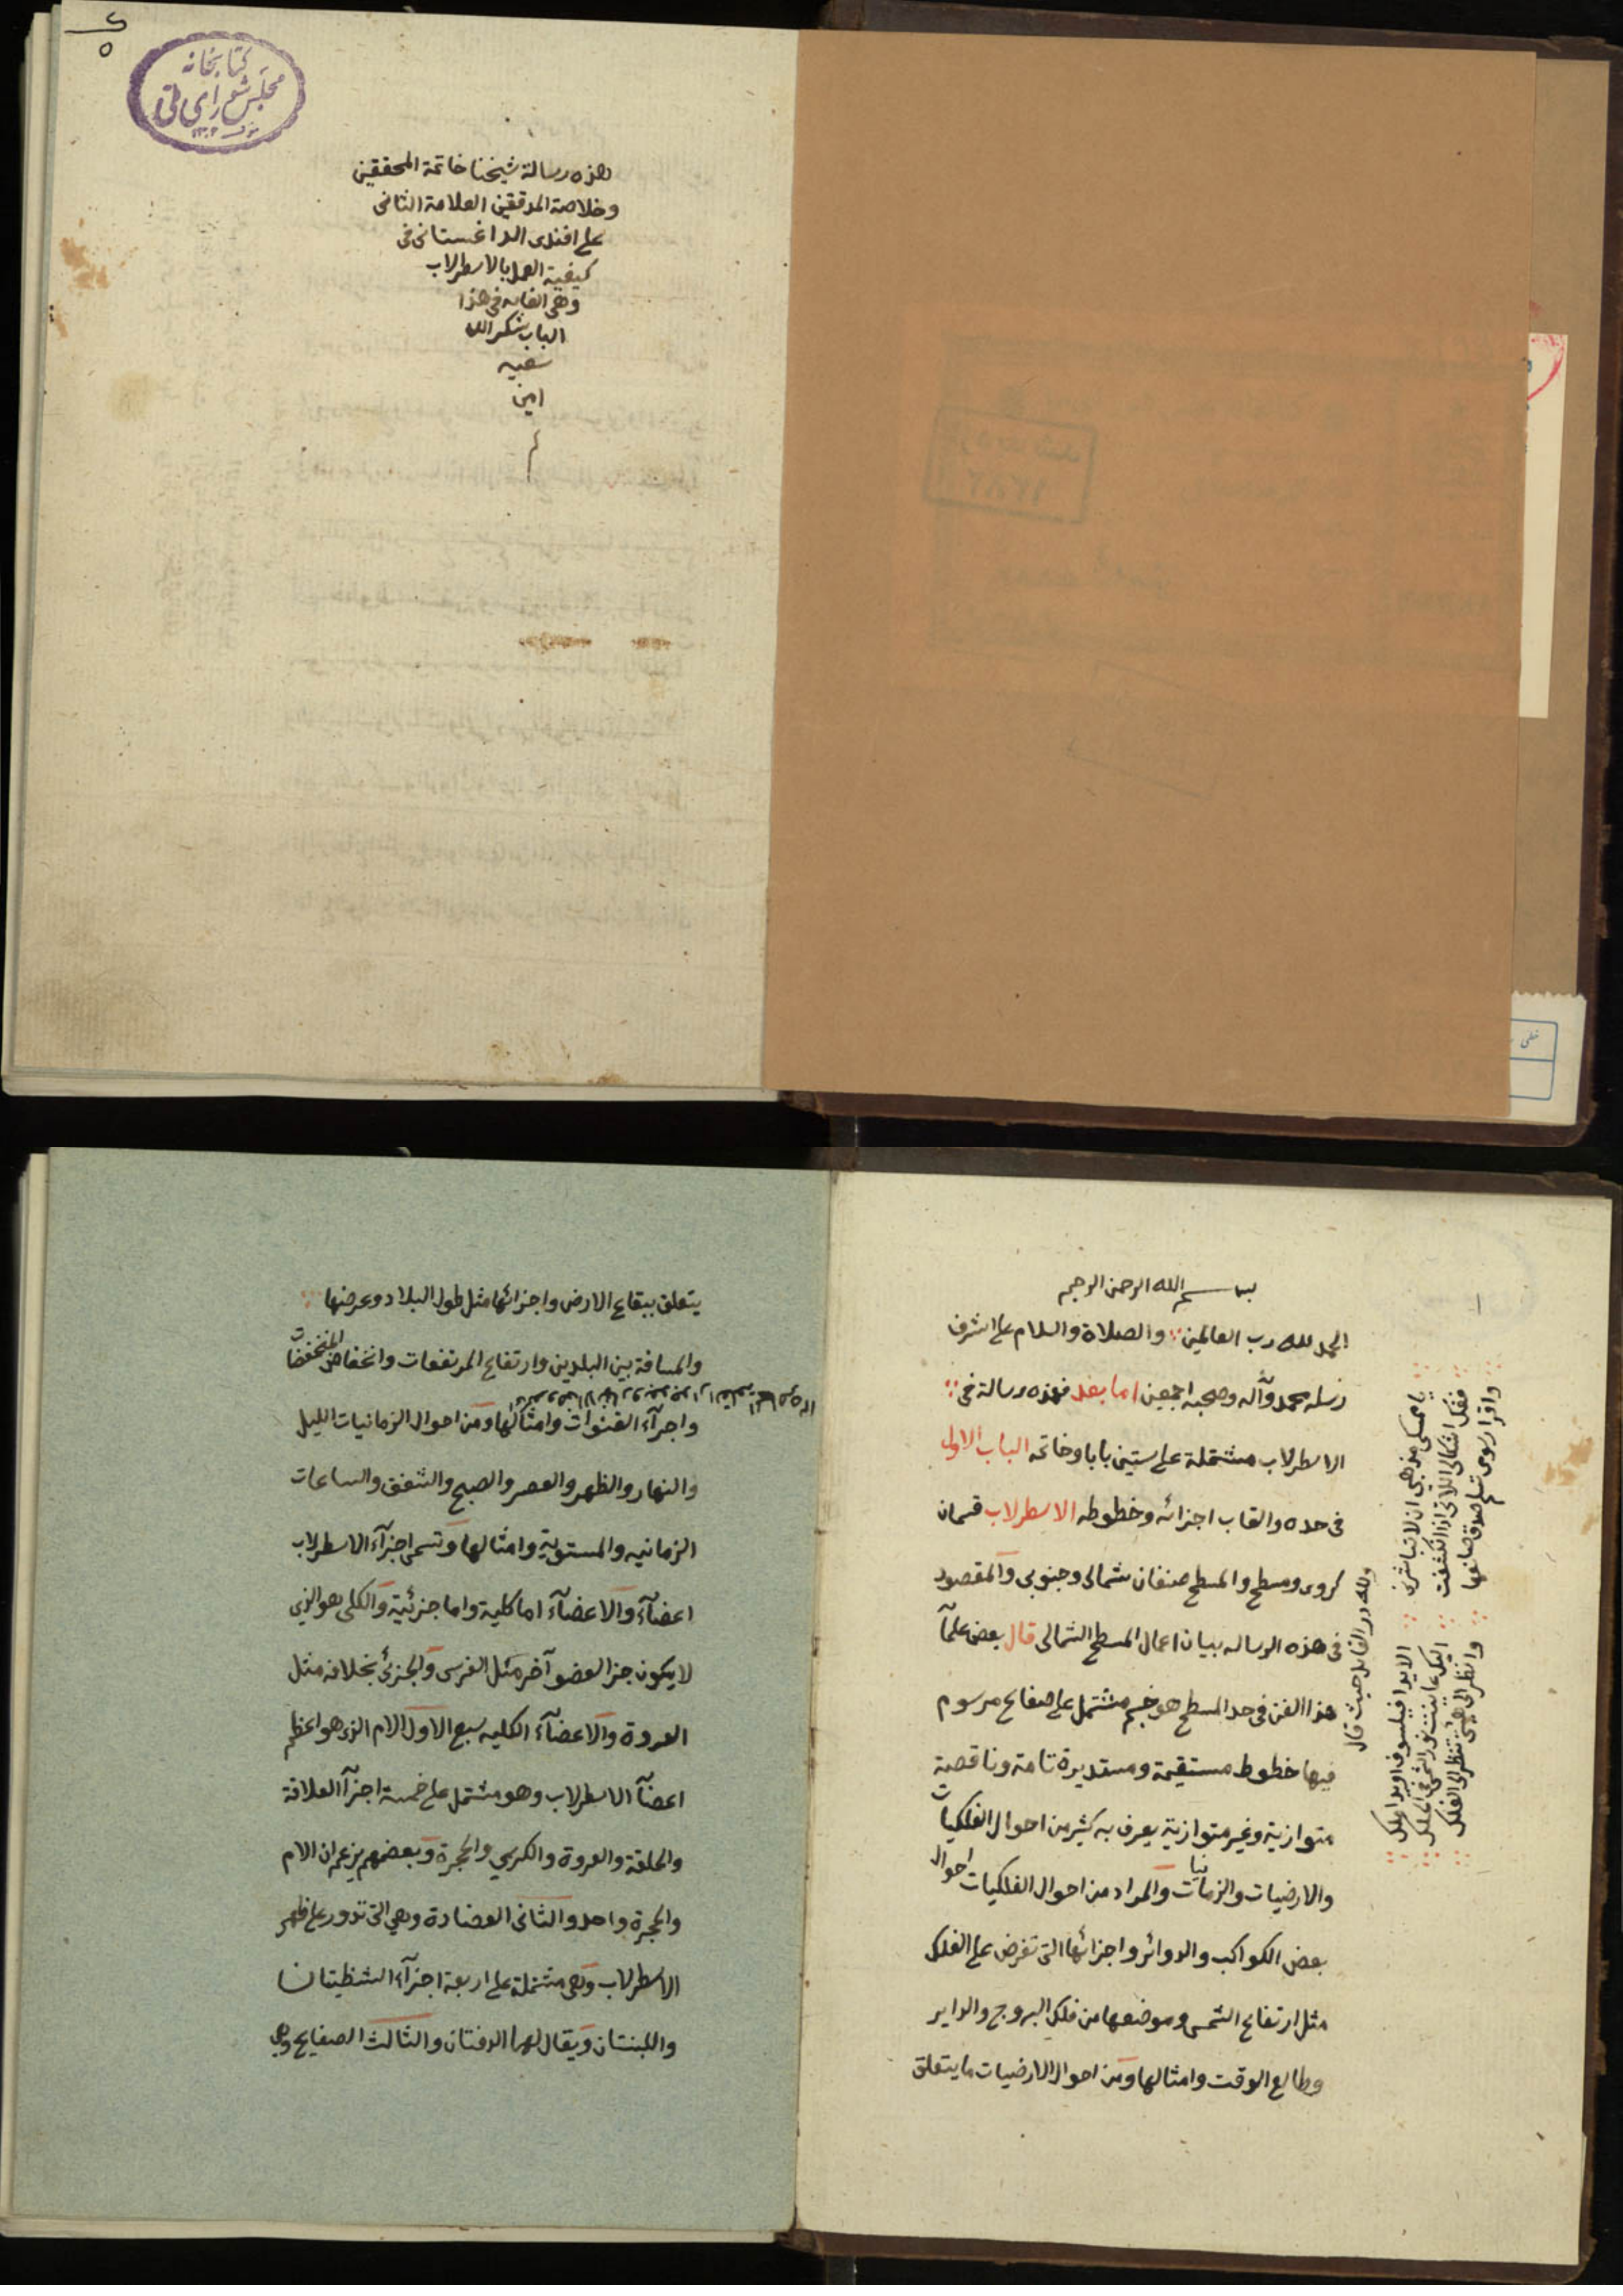 كتابخانه
مجلس شورای ملی
١٣٠٢
هذه رسالة شيخنا خاتمة المحققين
وخلاصة المدققين العلامة الثانى
على افندى الداغستانى فى
كيفية العمل بالاسطرلاب
وهى الغايه فى هذا
الباب شكر الله
سعيه
امين
م
بسم الله الرحمن الرحيم
الحمد لله رب العالمين والصلاة والسلام على اشرف
رسله محمد وآله وصحبه اجمعين اما بعد فهذه رسالة فى
الاسطرلاب مشتملة على ستين بابا وخاتمه الباب الاول
فى حده والقاب اجزائه وخطوطه الاسطرلاب قسمان
كروى ومسطح والمسطح صنفان شمالى وجنوبى والمقصود
فى هذه الرساله بيان اعمال المسطح الشمالى قال بعض علمآ
هذا الفن فى حد المسطح هو جسم مشتمل على صفايح مرسوم
فيها خطوط مستقيمة ومستديرة تامة وناقصة
متوازية وغير متوازية يعرف به كثير من احوال الفلكيات
والارضيات والزمانيات والمراد من احوال الفلكيات احوال
بعض الكواكب والدوائر واجزائها التى تفرض على الفلك
مثل ارتفاع الشمس وموضعها من فلك البروج والداير
وطالع الوقت وامثالها ومن احوال الارضيات ما يتعلق
ولله در القائل حيث قال
يا ممسكى مذهبى ان لا تباشرنى
الا يدا فيلسوف او يدا ملك
ففك اشكالى اللاتى اذا انكشفت
واقرا رسومى تسلم صدق صانعها
وانظر الى هيئتى تنظر الى الفلك
يتعلق ببقاع الارض واجزائها مثل طول البلاد وعرضها
والمسافة بين البلدين وارتفاع المرتفعات وانخفاض المنخفضات
واجرآء القنوات وامثالها ومن احوال الزمانيات الليل
والنهار والظهر والعصر والصبح والشفق والساعات
الزمانيه والمستوية وامثالها وتسمى اجزآء الاسطرلاب
اعضآء والاعضآء اما كلية واما جزئية والكلى هو الذى
لا يكون جزا لعضو آخر مثل الفرس والجزئى بخلافه مثل
العروة والاعضآء الكليه سبع الاول الام الذى هو اعظم
اعضآ الاسطرلاب وهو مشتمل على خمسة اجزآ العلاقة
والحلقة والعروة والكرسي والحجرة وبعضهم يزعم ان الام
والحجرة واحد والثانى العضادة وهى التى تدور على ظهر
الاسطرلاب وهى مشتملة على اربعة اجزآء الشظيتان
واللبنتان ويقال لهما الدفتان والثالث الصفايح وهى